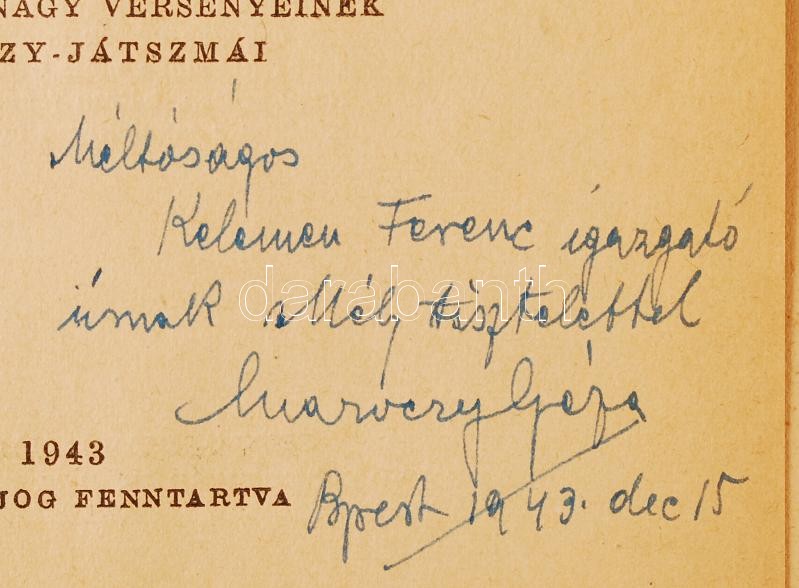 NAGY VERSENYEINEK
ZY-JÁTSZMÁI
Méltóságos
Kelemen Ferenc igazgató
úrnak Mély tisztelettel
darabanth
Maróczy Géza
1943
JOG FENNTARTVA
Bpest 1943. dec 15